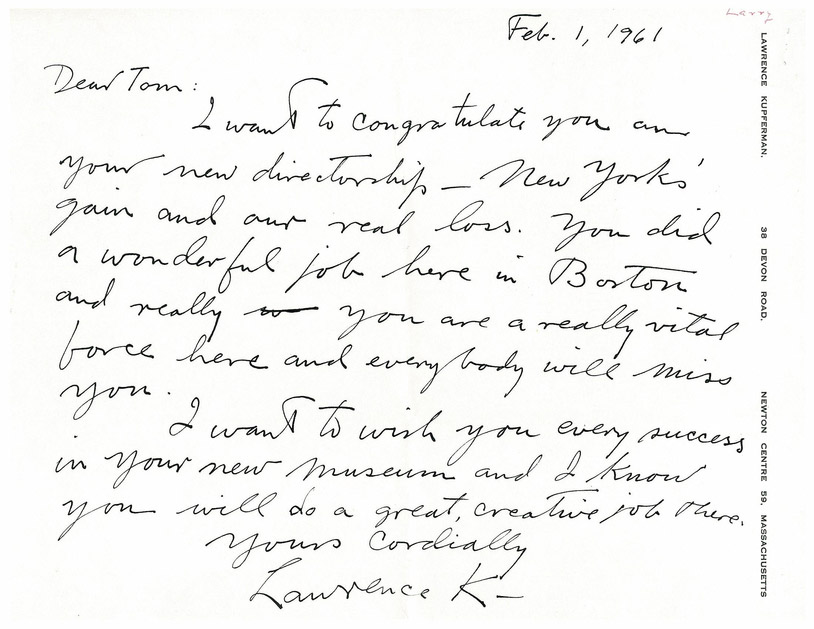 Larry
Feb. 1, 1961
Dear Tom:
I want to congratulate you on
your new directorship — New York's
gain and our real loss. You did
a wonderful job here in Boston
and really you are a really vital
force here and everybody will miss
you.
I want to wish you every success
in your new museum and I know
you will do a great, creative job there.
Yours Cordially
Lawrence K—
LAWRENCE KUPFERMAN, 38 DEVON ROAD, NEWTON CENTRE 59, MASSACHUSETTS